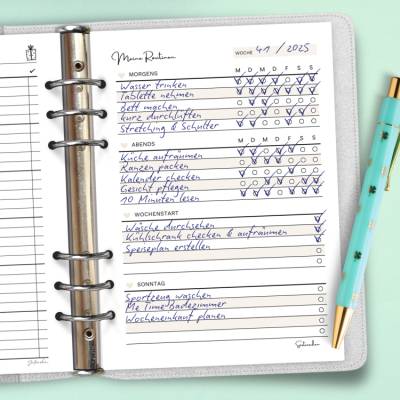 Meine Routinen
WOCHE 41 / 2025
MORGENS M D M D F S S
Wasser trinken
Tablette nehmen
Bett machen
kurz durchlüften
Stretching & Schulter
ABENDS M D M D F S S
Küche aufräumen
Ranzen packen
Kalender checken
Gesicht pflegen
10 Minuten lesen
WOCHENSTART
Wäsche durchsehen
Kühlschrank checken & aufräumen
Speiseplan erstellen
SONNTAG
Sportzeug waschen
Me Time Badezimmer
Wocheneinkauf planen